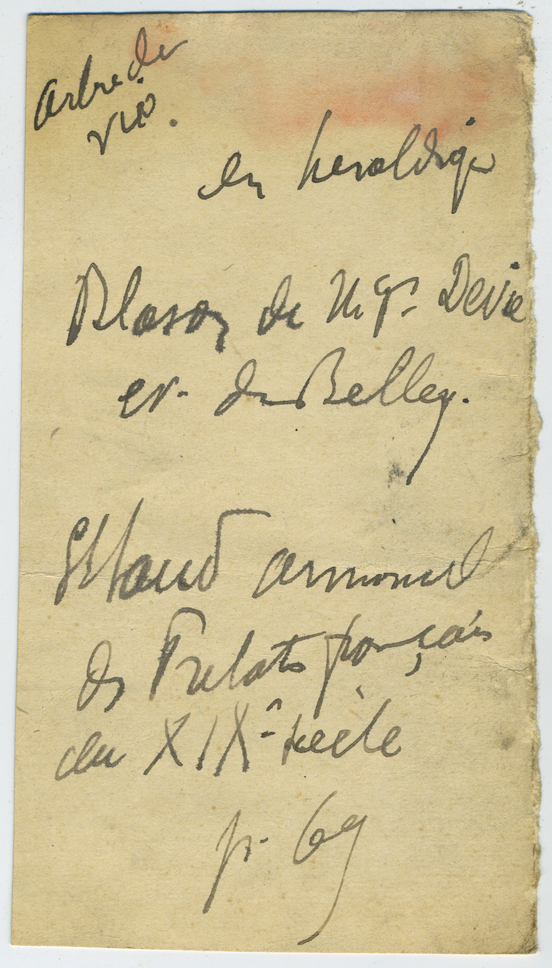 arbre de
vie.
en heraldique
Blason de Mgr. Devie
ev. de Belley.
armorial
des Prelats français
du XIXe siècle
p. 69